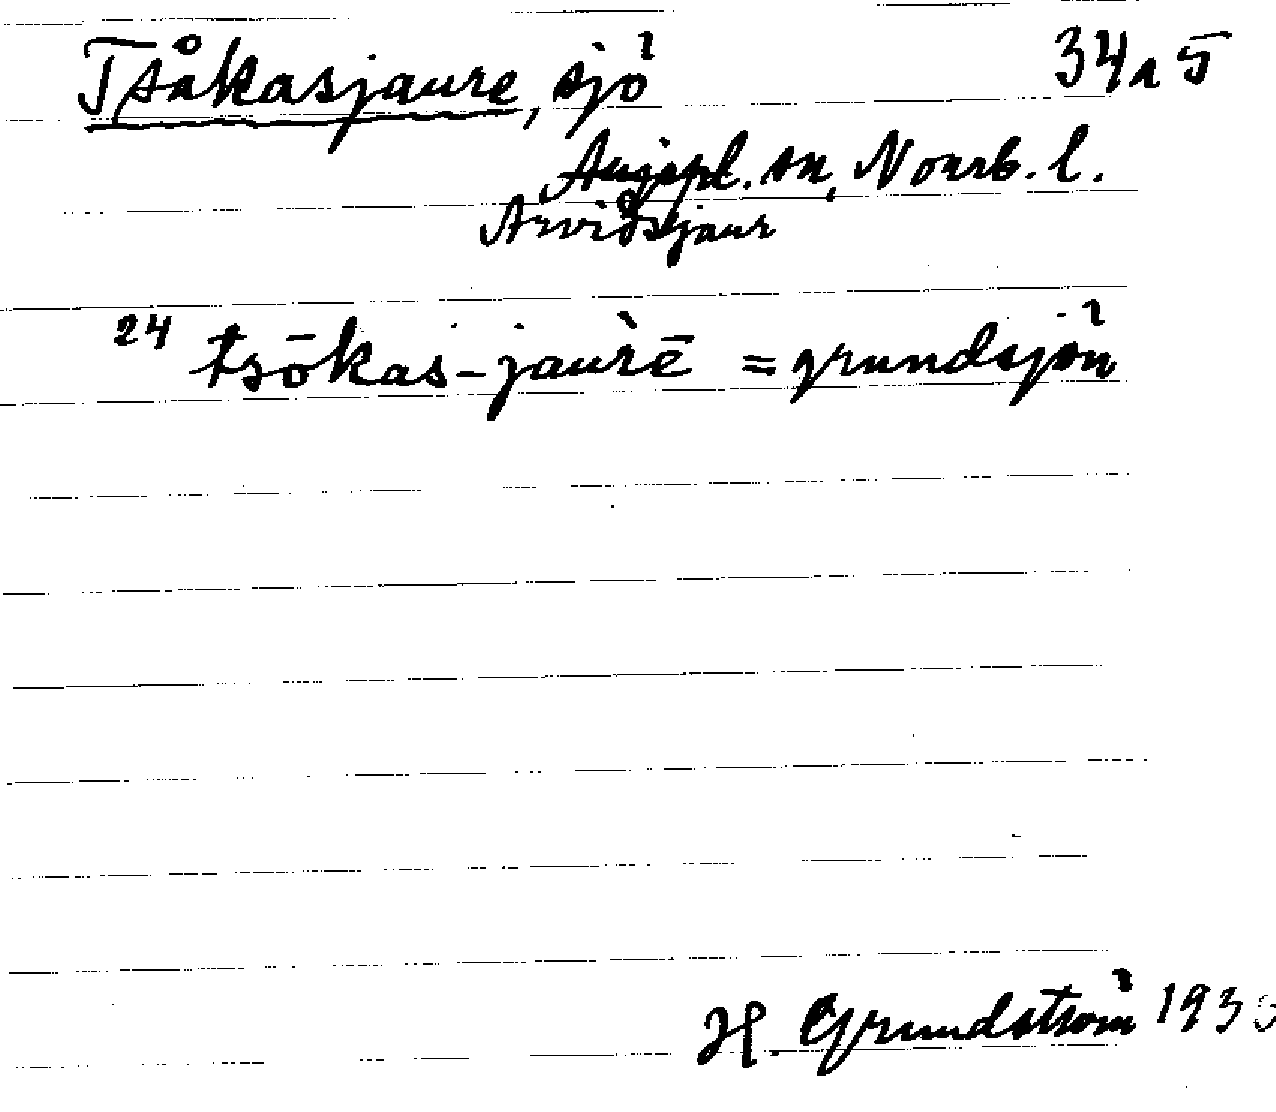 Tsåkasjaure, sjö 34 a 5
Arjepl. sn, Norrb. l.
Arvidsjaur
24 tsōkas-jaùrē = grundsjön
H. Grundström 193